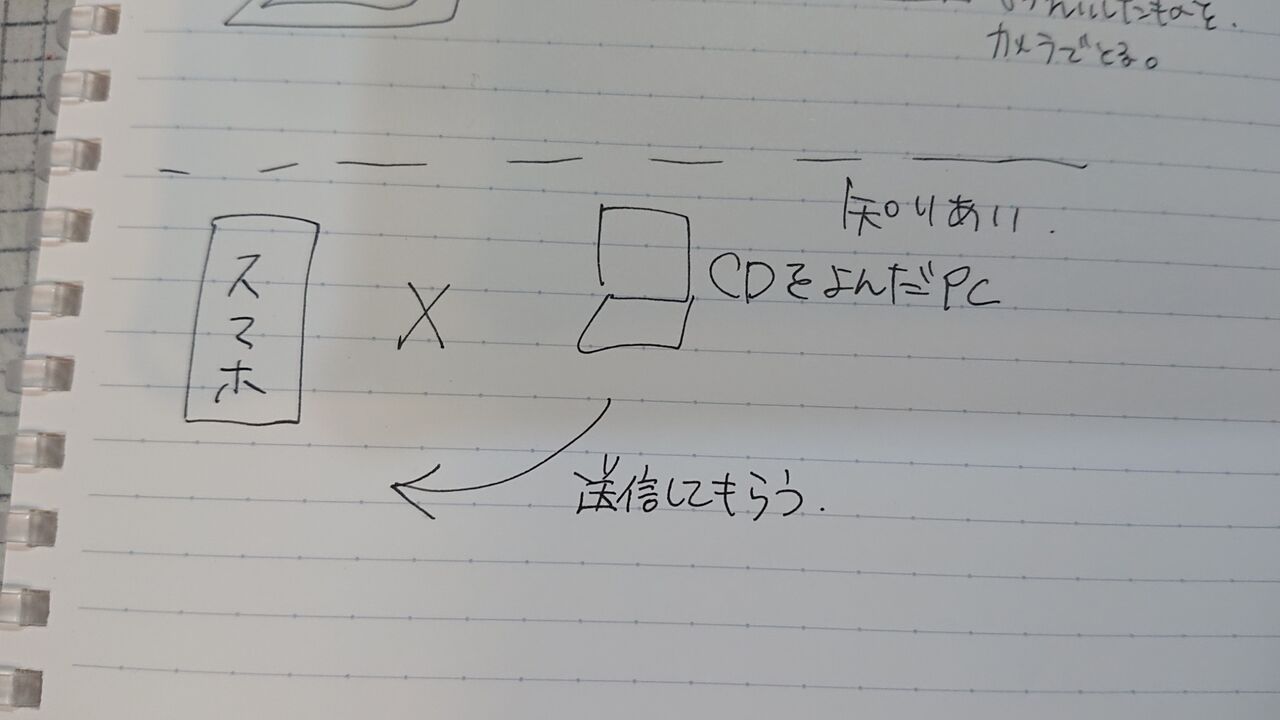 したものを.
カメラでとる。
知りあい.
スマホ
X
CDをよんだPC
送信してもらう.